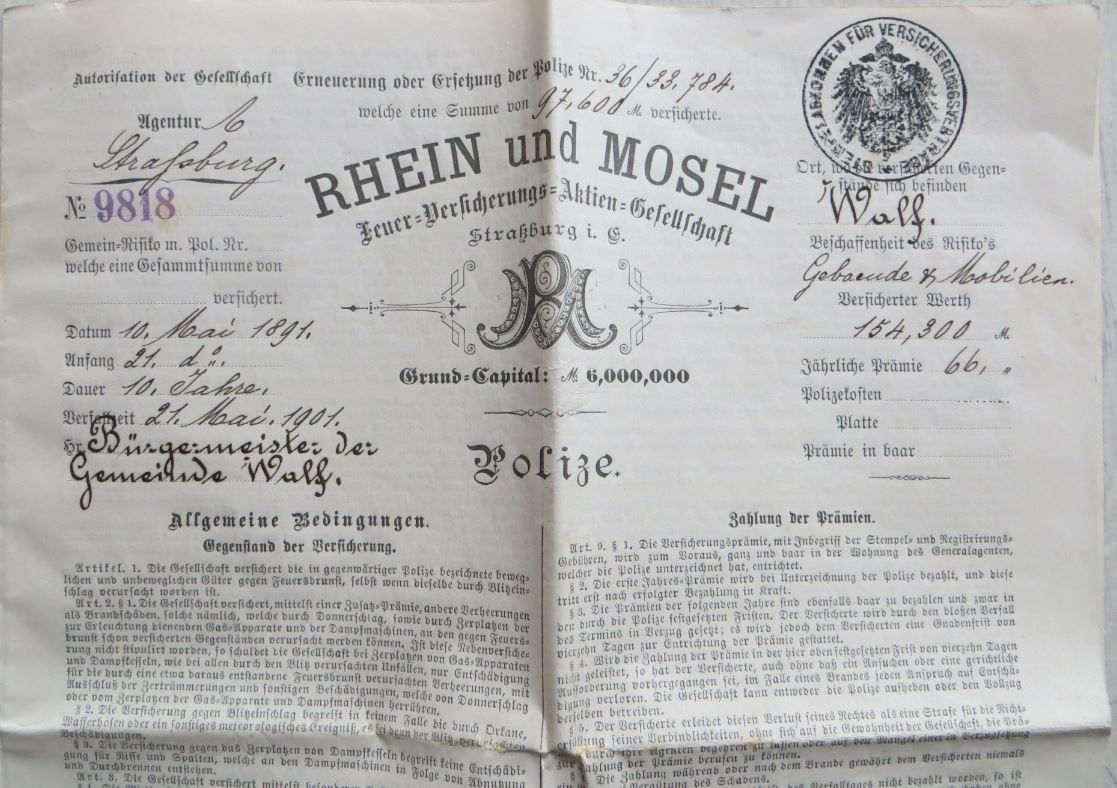 Autorisation der Gesellschaft
Erneuerung oder Ersetzung der Polize Nr. 36/33,784.
welche eine Summe von 97,600 M. versicherte.
Agentur
Strassburg.
№ 9818
Gemein-Risiko m. Pol. Nr.
welche eine Gesammtsumme von
versichert.
Datum 10. Mai 1891.
Anfang 21. do.
Dauer 10. Jahre.
Verfallzeit 21. Mai. 1901.
Hr. Bürgermeister der
Gemeinde Walf.
RHEIN und MOSEL
Feuer-Versicherungs-Aktien-Gesellschaft
Straßburg i. E.
Grund-Capital: M. 6,000,000
Polize.
FÜR VERSICHERUNGSVERTRÄGE
Ort, wo die versicherten Gegen-
stände sich befinden
Walf.
Beschaffenheit des Risiko's
Gebaeude & Mobilien.
Versicherter Werth
154,300 M.
Jährliche Prämie 66, "
Polizekosten
Platte
Prämie in baar
Allgemeine Bedingungen.
Gegenstand der Versicherung.
Artikel. 1. Die Gesellschaft versichert die in gegenwärtiger Polize bezeichnete beweg-
lichen und unbeweglichen Güter gegen Feuersbrunst, selbst wenn dieselbe durch Blitzein-
schlag verursacht worden ist.
Art. 2. § 1. Die Gesellschaft versichert, mittelst einer Zusatz-Prämie, andere Verheerungen
als Brandschäden, solche nämlich, welche durch Donnerschlag, sowie durch Zerplatzen der
zur Erleuchtung dienenden Gas-Apparate und der Dampfmaschinen, an den gegen Feuers-
brunst schon versicherten Gegenständen verursacht werden können. Ist diese Nebenversiche-
rung nicht stipulirt worden, so schuldet die Gesellschaft bei Zerplatzen von Gas-Apparaten
und Dampfkesseln, wie bei allen durch den Blitz verursachten Unfällen, nur Entschädigung
für die durch eine etwa daraus entstandene Feuersbrunst verursachten Verheerungen, mit
Ausschluß der Zertrümmerungen und sonstigen Beschädigungen, welche von Donnerschlag
oder von Zerplatzen der Gas-Apparate und Dampfmaschinen herrühren.
§ 2. Die Versicherung gegen Blitzeinschlag begreift in keinem Falle die durch Orkane,
Wasserhosen oder ein sonstiges meteorologisches Ereigniß, es sei denn der Blitz, verursachten
Beschädigungen.
§ 3. Die Versicherung gegen das Zerplatzen von Dampfkesseln begreift keine Entschädi-
gung für Risse und Spalten, welche an den Dampfmaschinen in Folge von Abnutzung
und Durchbrennen entstehen.
Art. 3. Die Gesellschaft versichert mittelst
Zahlung der Prämien.
Art. 9. § 1. Die Versicherungsprämie, mit Inbegriff der Stempel- und Registrirungs-
Gebühren, wird zum Voraus, ganz und baar in der Wohnung des Generalagenten,
welcher die Polize unterzeichnet hat, entrichtet.
§ 2. Die erste Jahres-Prämie wird bei Unterzeichnung der Polize bezahlt, und diese
tritt erst nach erfolgter Bezahlung in Kraft.
§ 3. Die Prämien der folgenden Jahre sind ebenfalls baar zu bezahlen und zwar in
den durch die Polize festgesetzten Fristen. Der Versicherte wird durch den bloßen Verfall
des Termins in Verzug gesetzt; es wird jedoch dem Versicherten eine Gnadenfrist von
vierzehn Tagen zur Entrichtung der Prämie gestattet.
§ 4. Wird die Zahlung der Prämie in der hier oben festgesetzten Frist von vierzehn Tagen
nicht geleistet, so hat der Versicherte, auch ohne daß ein Ansuchen oder eine gerichtliche
Aufforderung vorhergegangen sei, im Falle eines Brandes jeden Anspruch auf Entschä-
digung verloren. Die Gesellschaft kann entweder die Polize aufheben oder den Vollzug
derselben betreiben.
§ 5. Der Versicherte erleidet diesen Verlust seines Rechtes als eine Strafe für die Nicht-
erfüllung seiner Verbindlichkeiten, ohne sich auf die Gewohnheit der Gesellschaft, die Prä-
mie durch ihre Agenten begehren zu lassen oder auf den Mangel einer in Verzugsetzung
zur Zahlung der Prämie berufen zu können.
Die Zahlung während oder nach dem Brande gewährt dem Versicherten niemals
Vergütung des Schadens.
des Verfalltages nicht bezahlt worden, so ist